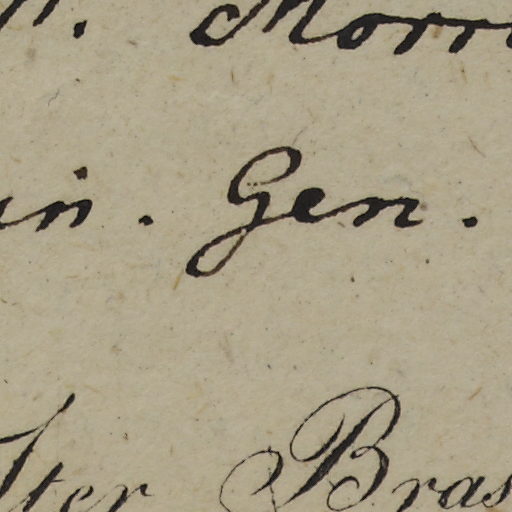 Morr
in. Gen.
ter Bras